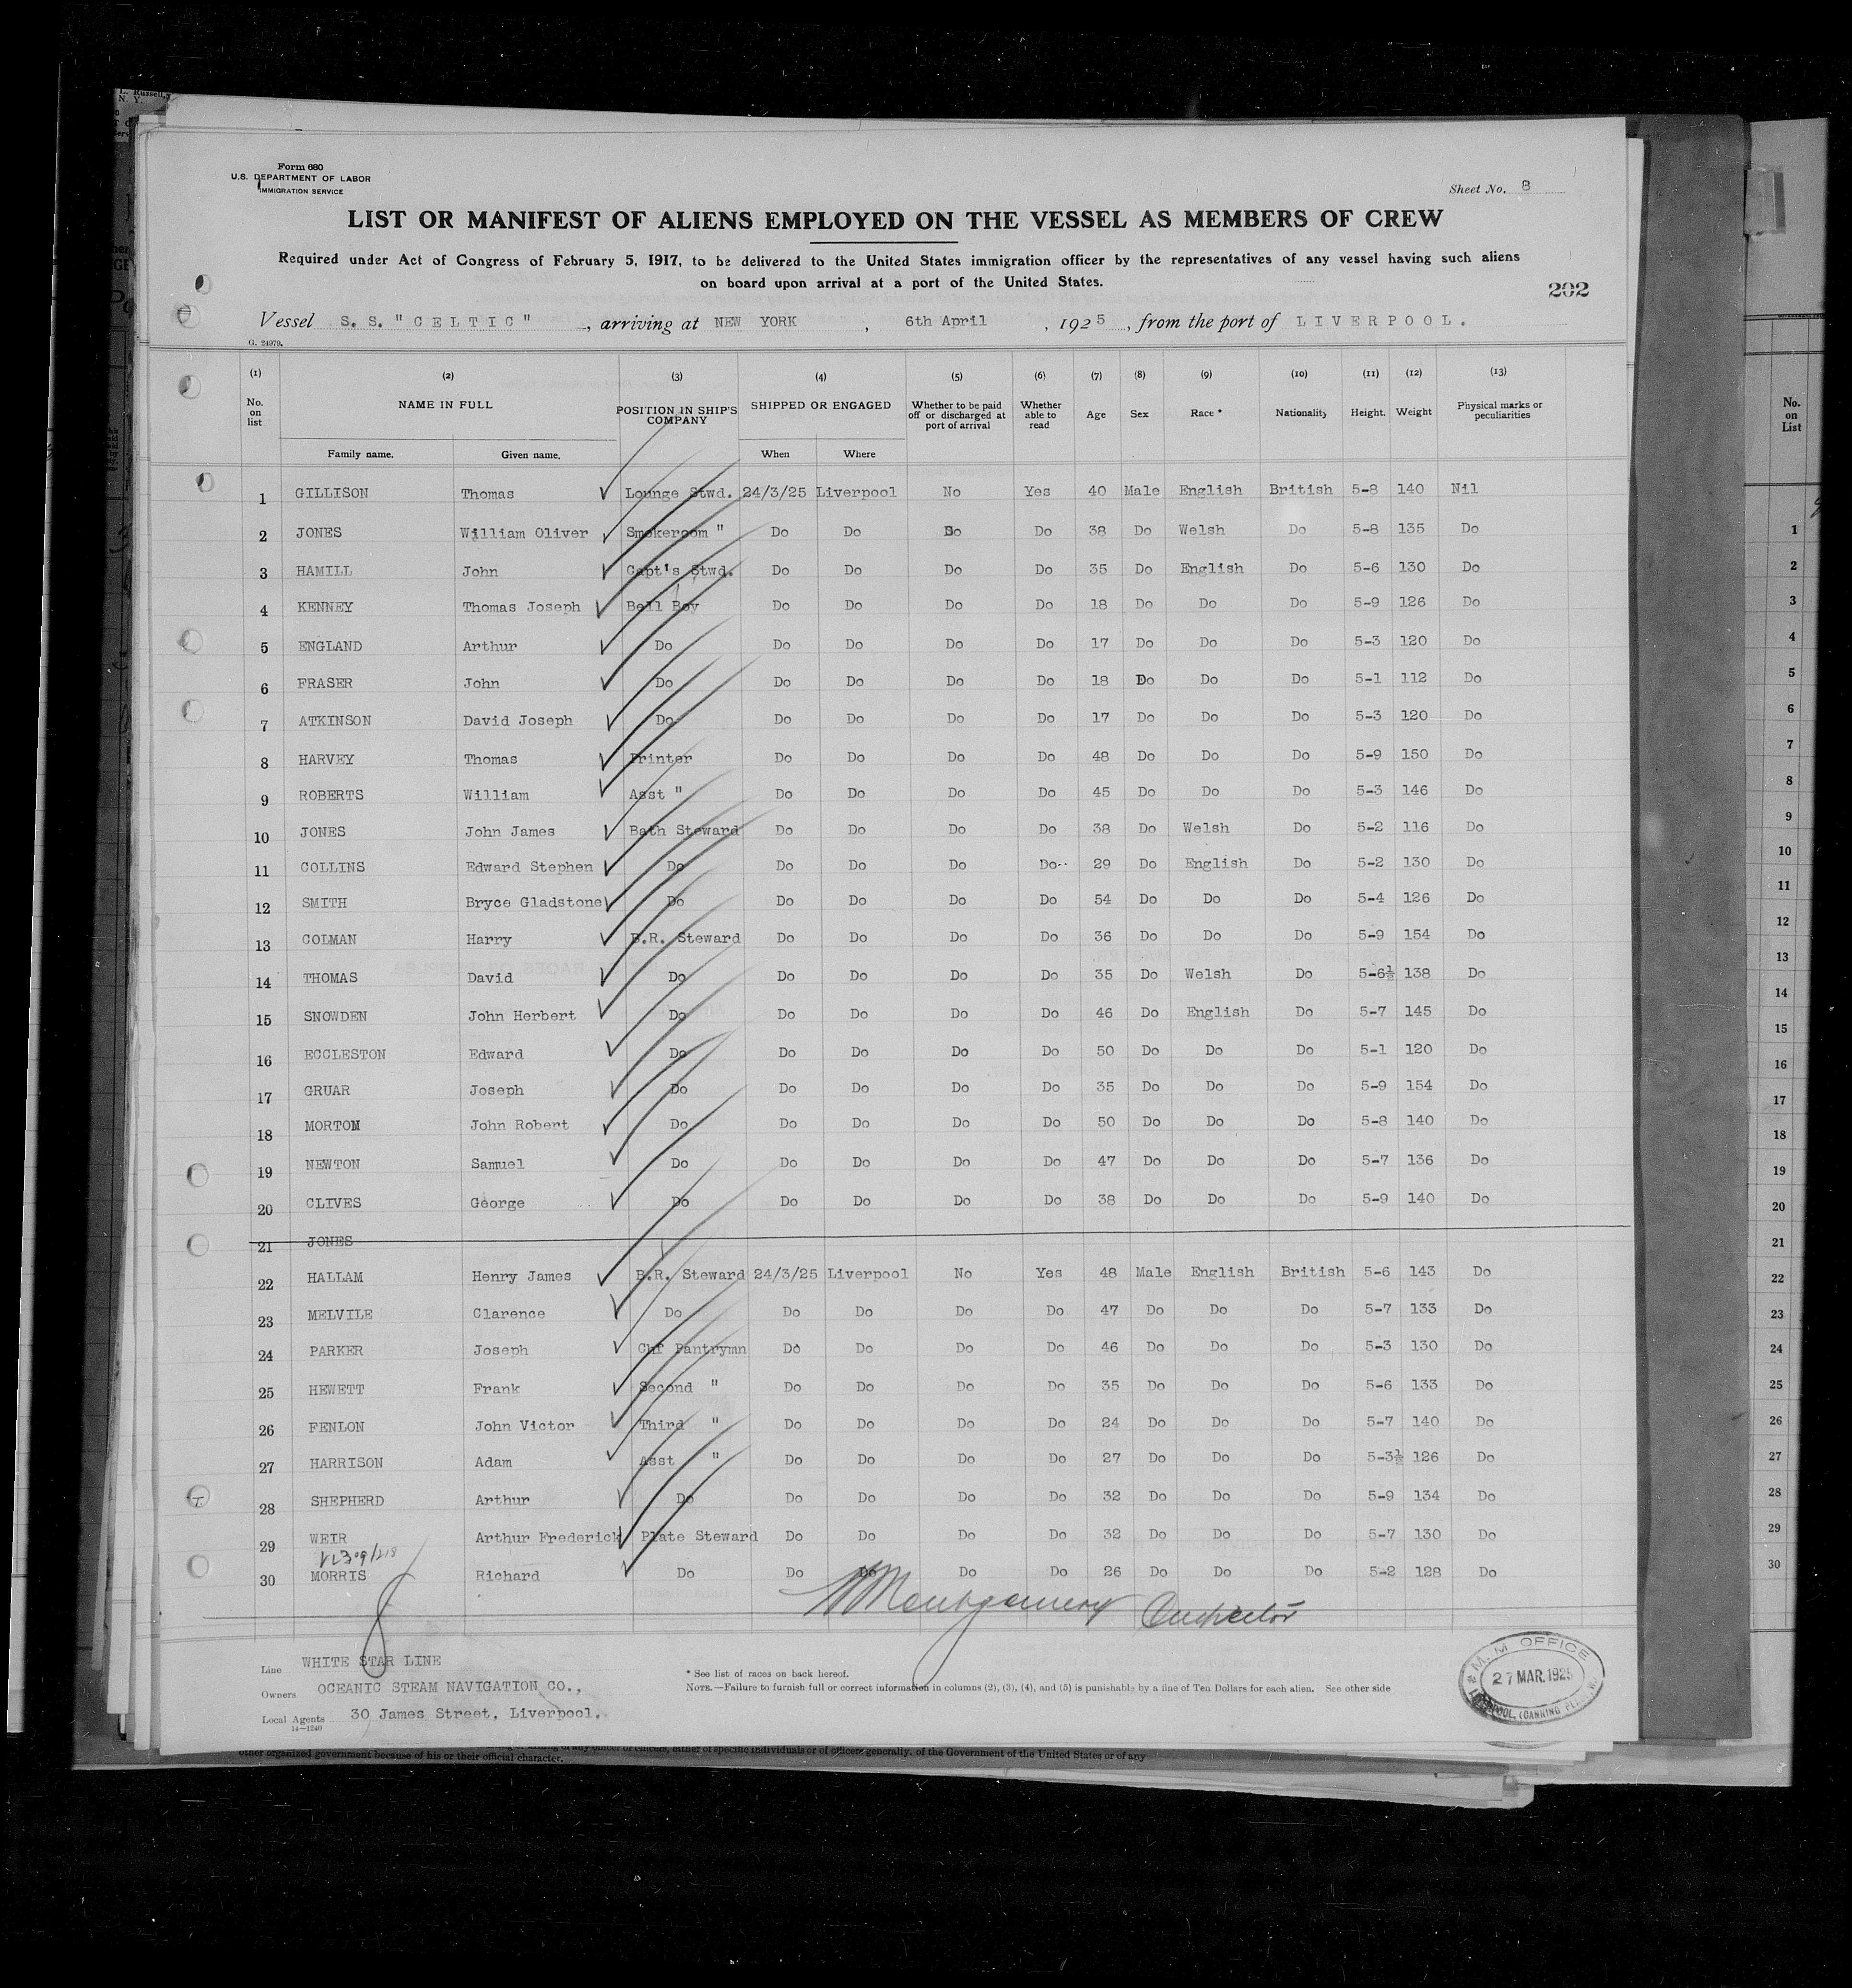 Form 680
U.S. DEPARTMENT OF LABOR
IMMIGRATION SERVICE
Sheet No. 8
LIST OR MANIFEST OF ALIENS EMPLOYED ON THE VESSEL AS MEMBERS OF CREW
Required under Act of Congress of February 5, 1917, to be delivered to the United States immigration officer by the representatives of any vessel having such aliens
on board upon arrival at a port of the United States.
202
Vessel S. S. "CELTIC", arriving at NEW YORK, 6th April, 1925, from the port of LIVERPOOL.
G. 24979.
(1) (2) (3) (4) (5) (6) (7) (8) (9) (10) (11) (12) (13)
No. on list NAME IN FULL POSITION IN SHIP'S COMPANY SHIPPED OR ENGAGED Whether to be paid off or discharged at port of arrival Whether able to read Age Sex Race * Nationality Height. Weight Physical marks or peculiarities
Family name. Given name. When Where
1 GILLISON Thomas Lounge Stwd. 24/3/25 Liverpool No Yes 40 Male English British 5-8 140 Nil
2 JONES William Oliver Smokeroom " Do Do Do Do 38 Do Welsh Do 5-8 135 Do
3 HAMILL John Capt's Stwd. Do Do Do Do 35 Do English Do 5-6 130 Do
4 KENNEY Thomas Joseph Bell Boy Do Do Do Do 18 Do Do Do 5-9 126 Do
5 ENGLAND Arthur Do Do Do Do Do 17 Do Do Do 5-3 120 Do
6 FRASER John Do Do Do Do Do 18 Do Do Do 5-1 112 Do
7 ATKINSON David Joseph Do Do Do Do Do 17 Do Do Do 5-3 120 Do
8 HARVEY Thomas Printer Do Do Do Do 48 Do Do Do 5-9 150 Do
9 ROBERTS William Asst " Do Do Do Do 45 Do Do Do 5-3 146 Do
10 JONES John James Bath Steward Do Do Do Do 38 Do Welsh Do 5-2 116 Do
11 COLLINS Edward Stephen Do Do Do Do Do 29 Do English Do 5-2 130 Do
12 SMITH Bryce Gladstone Do Do Do Do Do 54 Do Do Do 5-4 126 Do
13 COLMAN Harry B.R. Steward Do Do Do Do 36 Do Do Do 5-9 154 Do
14 THOMAS David Do Do Do Do Do 35 Do Welsh Do 5-6½ 138 Do
15 SNOWDEN John Herbert Do Do Do Do Do 46 Do English Do 5-7 145 Do
16 ECCLESTON Edward Do Do Do Do Do 50 Do Do Do 5-1 120 Do
17 GRUAR Joseph Do Do Do Do Do 35 Do Do Do 5-9 154 Do
18 MORTON John Robert Do Do Do Do Do 50 Do Do Do 5-8 140 Do
19 NEWTON Samuel Do Do Do Do Do 47 Do Do Do 5-7 136 Do
20 CLIVES George Do Do Do Do Do 38 Do Do Do 5-9 140 Do
21 JONES
22 HALLAM Henry James B.R. Steward 24/3/25 Liverpool No Yes 48 Male English British 5-6 143 Do
23 MELVILE Clarence Do Do Do Do Do 47 Do Do Do 5-7 133 Do
24 PARKER Joseph Chf Pantrymn Do Do Do Do 46 Do Do Do 5-3 130 Do
25 HEWETT Frank Second " Do Do Do Do 35 Do Do Do 5-6 133 Do
26 FENLON John Victor Third " Do Do Do Do 24 Do Do Do 5-7 140 Do
27 HARRISON Adam Asst " Do Do Do Do 27 Do Do Do 5-3½ 126 Do
28 SHEPHERD Arthur Do Do Do Do Do 32 Do Do Do 5-9 134 Do
29 WEIR Arthur Frederick Plate Steward Do Do Do Do 32 Do Do Do 5-7 130 Do
30 MORRIS Richard Do Do Do Do Do 26 Do Do Do 5-2 128 Do
Montgomery
Line WHITE STAR LINE
Owners OCEANIC STEAM NAVIGATION CO.,
Local Agents 30 James Street, Liverpool.
14—1240
* See list of races on back hereof.
NOTE.—Failure to furnish full or correct information in columns (2), (3), (4), and (5) is punishable by a fine of Ten Dollars for each alien. See other side
M. M OFFICE
27 MAR. 1925
LIVERPOOL, (CANNING PLACE
other organized government because of his or their official character.
either of specific individuals or of officers generally, of the Government of the United States or of any
No. on List
1
2
3
4
5
6
7
8
9
10
11
12
13
14
15
16
17
18
19
20
21
22
23
24
25
26
27
28
29
30